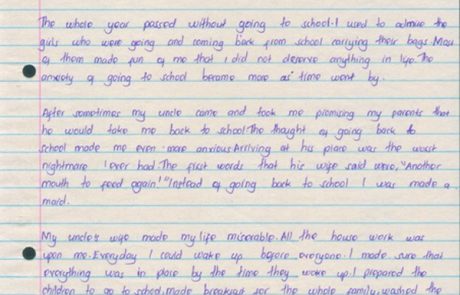 The whole year passed without going to school. I used to admire the
girls who were going and coming back from school carrying their bags. Most
of them made fun of me that I did not deserve anything in life. The
anxiety of going to school became more as time went by.
After sometimes my uncle came and took me promising my parents that
he would take me back to school. The thought of going back to
school made me even more anxious. Arriving at his place was the worst
nightmare I ever had. The first words that his wife said were, "Another
mouth to feed again!" Instead of going back to school I was made a
maid.
My uncle's wife made my life miserable. All the house work was
upon me. Everyday I could wake up before everyone. I made sure that
everything was in place by the time they woke up. I prepared the
children to go to school, made breakfast for the whole family, washed the